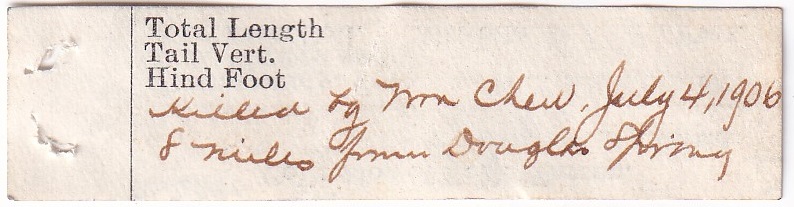 Total Length
Tail Vert.
Hind Foot
Killed by Wm Chew, July 4, 1906
8 miles from Douglas Spring